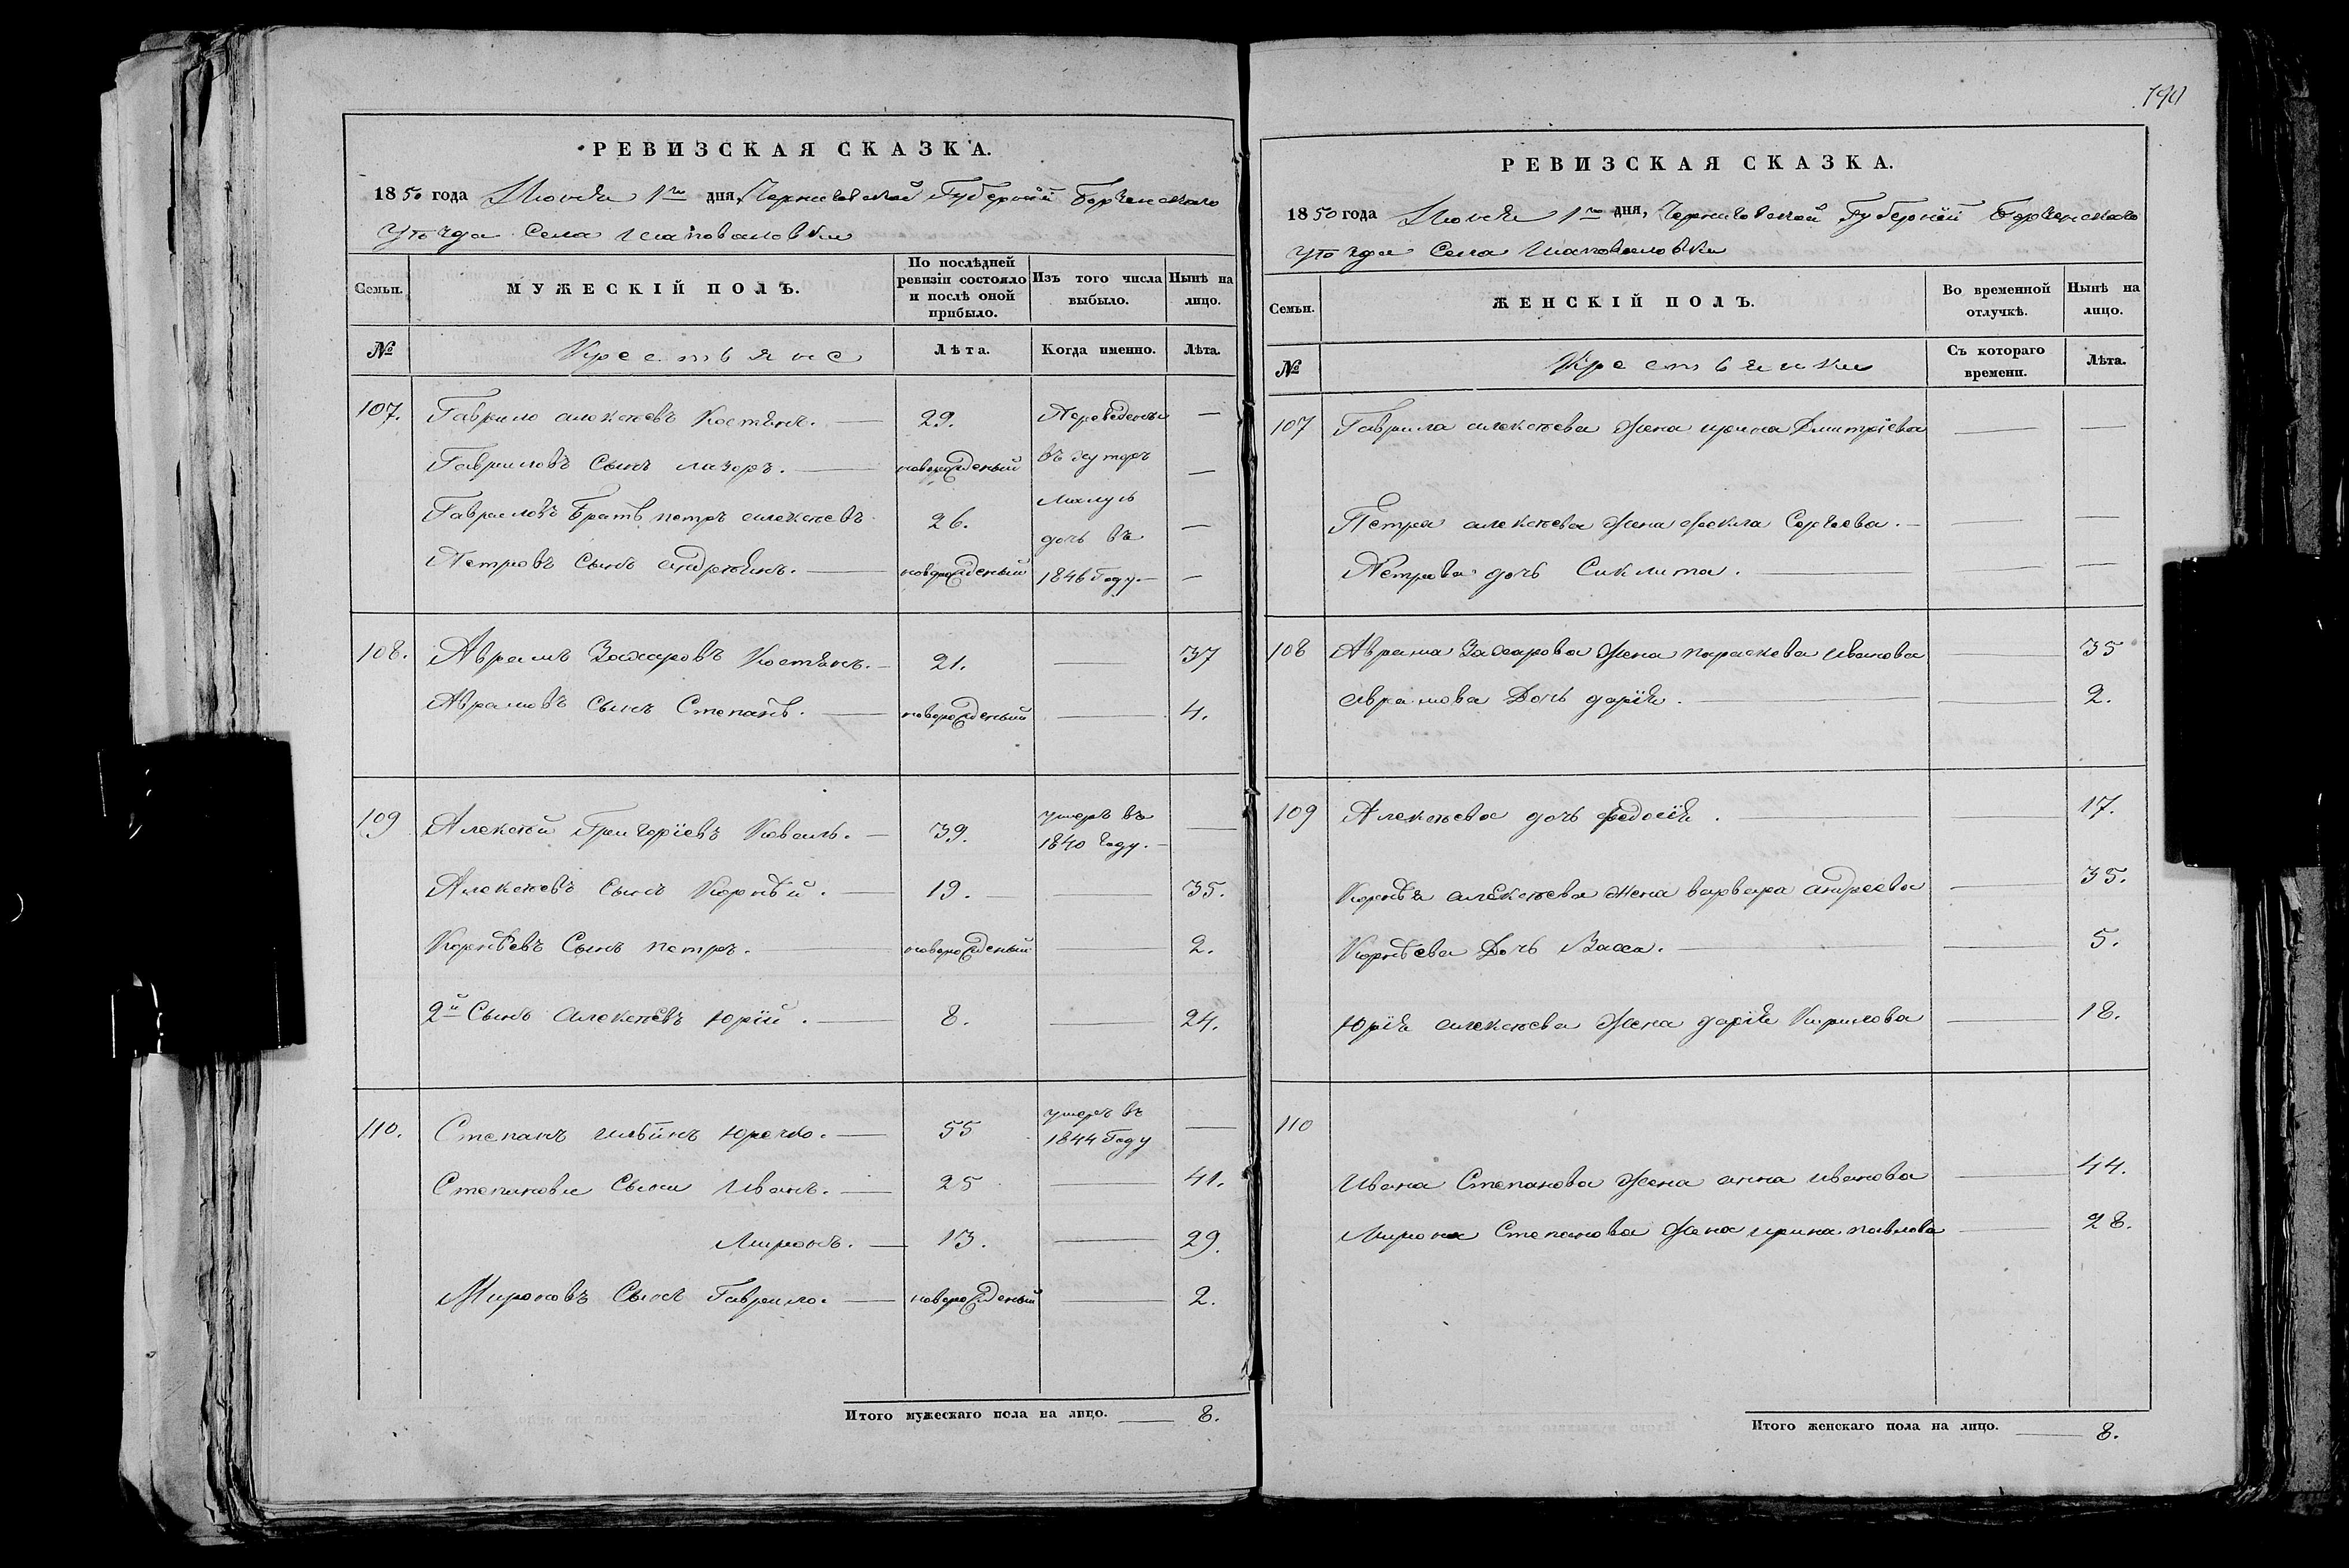 РЕВИЗСКАЯ СКАЗКА.
1850 года Июня 1го дня, Черниговской Губерніи Борзенского
уѣзда Села Шаповаловки
Семьи.
МУЖЕСКІЙ ПОЛЪ.
По послѣдней ревизіи состояло и послѣ оной прибыло.
Изъ того числа выбыло.
Нынѣ на лицо.
№
Крестьяне
Лѣта.
Когда именно.
Лѣта.
107. Гаврило алексѣевъ Костѣнъ. — 29. Переведены —
Гавриловъ Сынъ лазоръ. — новорожденый въ хуторъ —
Гавриловъ Братъ петръ алексѣевъ 26. —
Петровъ Сынъ андреянъ. — новорожденый 1846 Году. —
108. Аврамъ Захаровъ Костѣнъ. — 21. — 37
Аврамовъ Сынъ Степанъ. — новорожденый — 4.
109 Алексѣй Григоріевъ Коваль. — 39. умеръ въ 1840 году. —
Алексѣевъ Сынъ Корнѣй. — 19. — 35.
Корнѣевъ Сынъ петръ. — новорожденый — 2.
2й Сынъ алексѣевъ юрій. — 8. — 24.
110. Степанъ ильинъ юрченко. — 55 умеръ въ 1844 Году —
Степановы Сыны иванъ. — 25 — 41.
Миронъ. — 13. — 29.
Мироновъ Сынъ Гаврило. — новорожденый — 2.
Итого мужескаго пола на лицо. — 8.
190
РЕВИЗСКАЯ СКАЗКА.
1850 года Июня 1го дня, Черниговской Губерніи Борзенского
уѣзда Села Шаповаловки
Семьи.
ЖЕНСКІЙ ПОЛЪ.
Во временной отлучкѣ.
Нынѣ на лицо.
№
Крестьянки
Съ котораго времени.
Лѣта.
107 Гаврила алексѣева жена ирина Дмитріева — —
Петра алексѣева жена фекла Сергѣева. — — —
Петрова дочь Сиклита. — — —
108 Аврама Захарова жена параскева иванова — 35
аврамова Дочь дарія. — — 2.
109 Алексѣева дочь федосія. 17.
Корнѣя алексѣева жена варвара андреева — 35.
Корнѣева Дочь Васса. — — 5.
юрія алексѣева жена дарія Кирилова — 18.
110
Ивана Степанова жена анна иванова — 44.
Мирона Степанова жена ирина павлова — 28.
Итого женскаго пола на лицо. — 8.